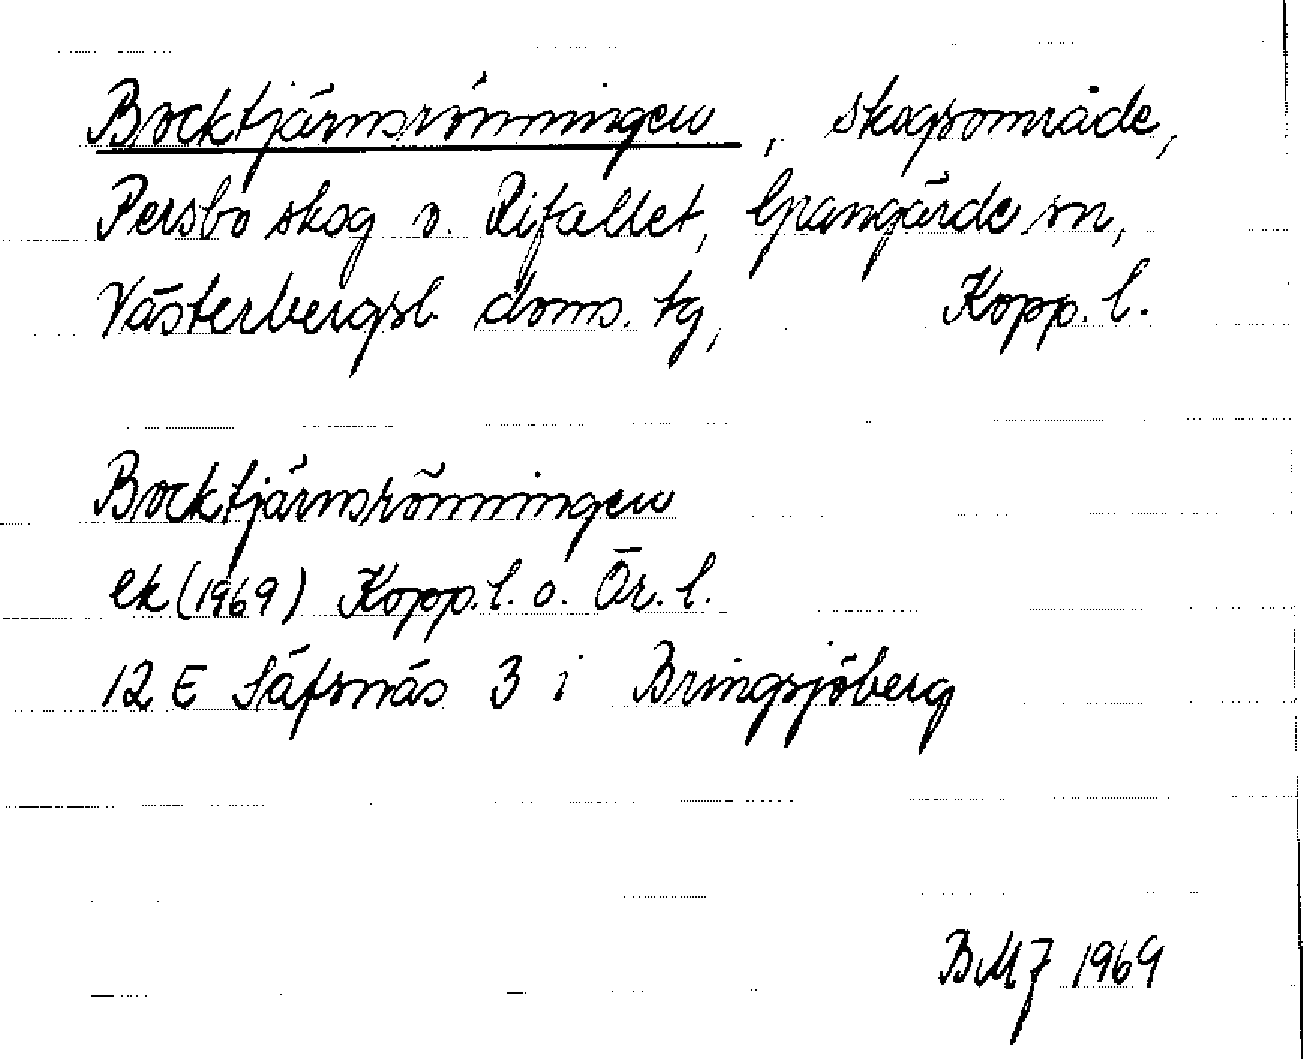 Bocktjärnsrönningen, skogsområde,
Persbo skog o. Rifallet, Grangärde sn,
Västerbergsl. doms. tg, Kopp. l.
Bocktjärnsrönningen
ek (1969) Kopp. l. o. Ör. l.
12 E Säfsnäs 3 i Bringsjöberg
BMJ 1969